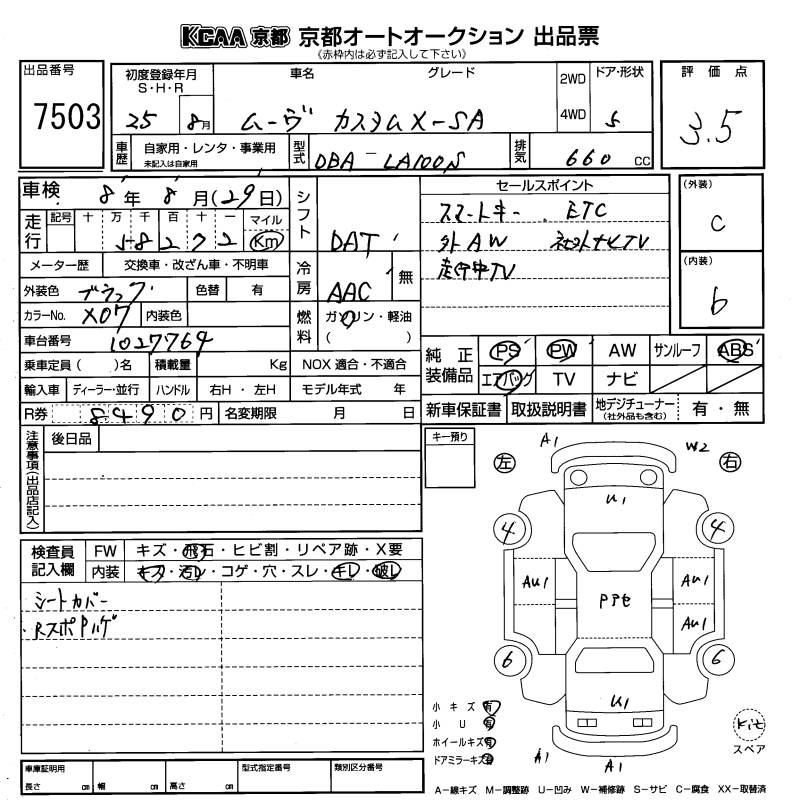 KCAA 京都 京都オートオークション 出品票
(赤枠内は必ず記入して下さい)
出品番号
7503
初度登録年月
S・H・R
25 8月
車名
グレード
ムーヴ カスタムX-SA
2WD
4WD
ドア・形状
5
評価点
3.5
車歴
自家用・レンタ・事業用
未記入は自家用
型式
DBA-LA100S
排気
660 CC
車検
8年 8月(29日)
走行
記号 十 万 千 百 十 一 マイル
58272 Km
メーター歴 交換車・改ざん車・不明車
外装色 ブラック 色替 有
カラーNo. X07 内装色
車台番号 1027764
乗車定員( )名 積載量 Kg
輸入車 ディーラー・並行 ハンドル 右H・左H
R券 8490円 名変期限 月 日
シフト DAT
冷房 AAC 無
燃料 ガソリン・軽油
( )
NOX 適合・不適合
モデル年式 年
セールスポイント
スマートキー ETC
外AW 社外ナビTV
走行中TV
(外装)
C
(内装)
b
純正装備品
PS PW AW サンルーフ ABS
エアバッグ TV ナビ
新車保証書 取扱説明書 地デジチューナー(社外品も含む) 有・無
注意事項(出品店記入)
後日品
キー預り
検査員記入欄
FW キズ・飛石・ヒビ割・リペア跡・X要
内装 キズ・汚レ・コゲ・穴・スレ・キレ・破レ
シートカバー
・RスポPハゲ
左
右
A1
W2
U1
4
4
AU1
AU1
AU1
PPセ
6
6
U1
A1
A1
小キズ 有
小U 有
ホイールキズ 有
ドアミラーキズ 有
Kit
スペア
車庫証明用
長さ cm 幅 cm 高さ cm
型式指定番号
類別区分番号
A-線キズ M-調整跡 U-凹み W-補修跡 S-サビ C-腐食 XX-取替済